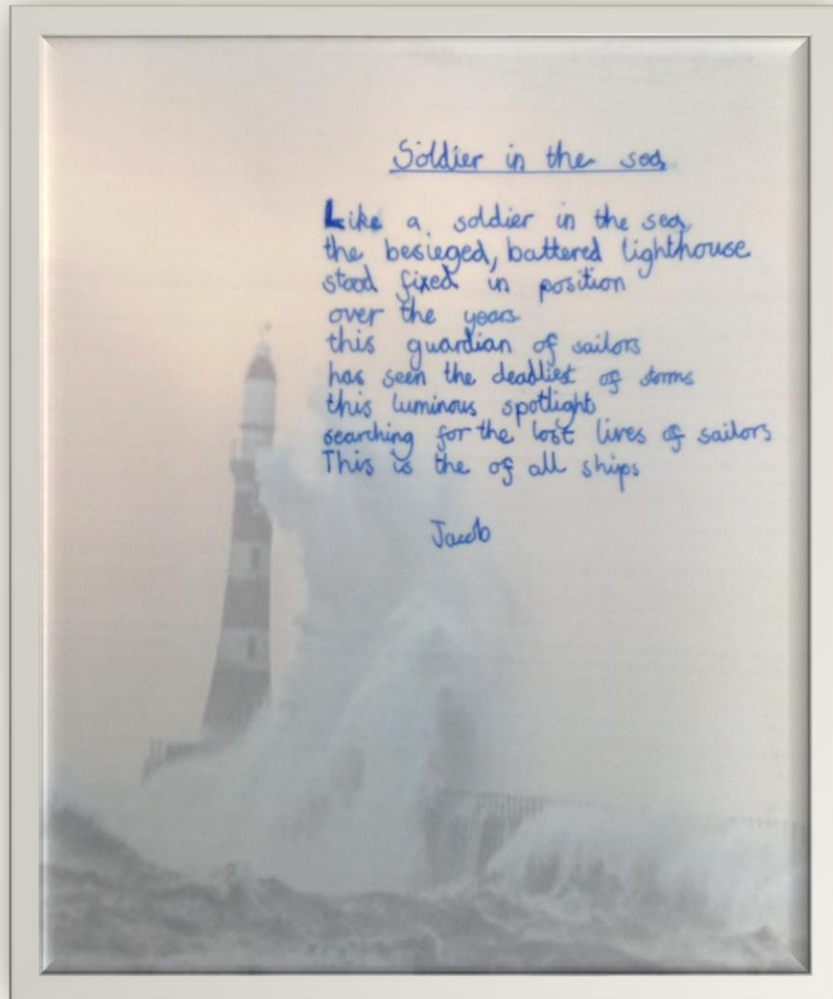 Soldier in the sea
Like a soldier in the sea
the besieged, battered lighthouse
stood fixed in position
over the years
this guardian of sailors
has seen the deadliest of storms
this luminous spotlight
searching for the lost lives of sailors
This is the of all ships
Jacob